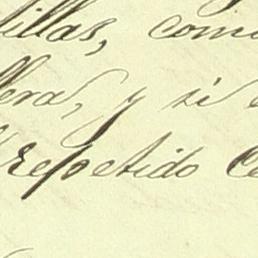 illas, com
lera, y si
repetido Ce